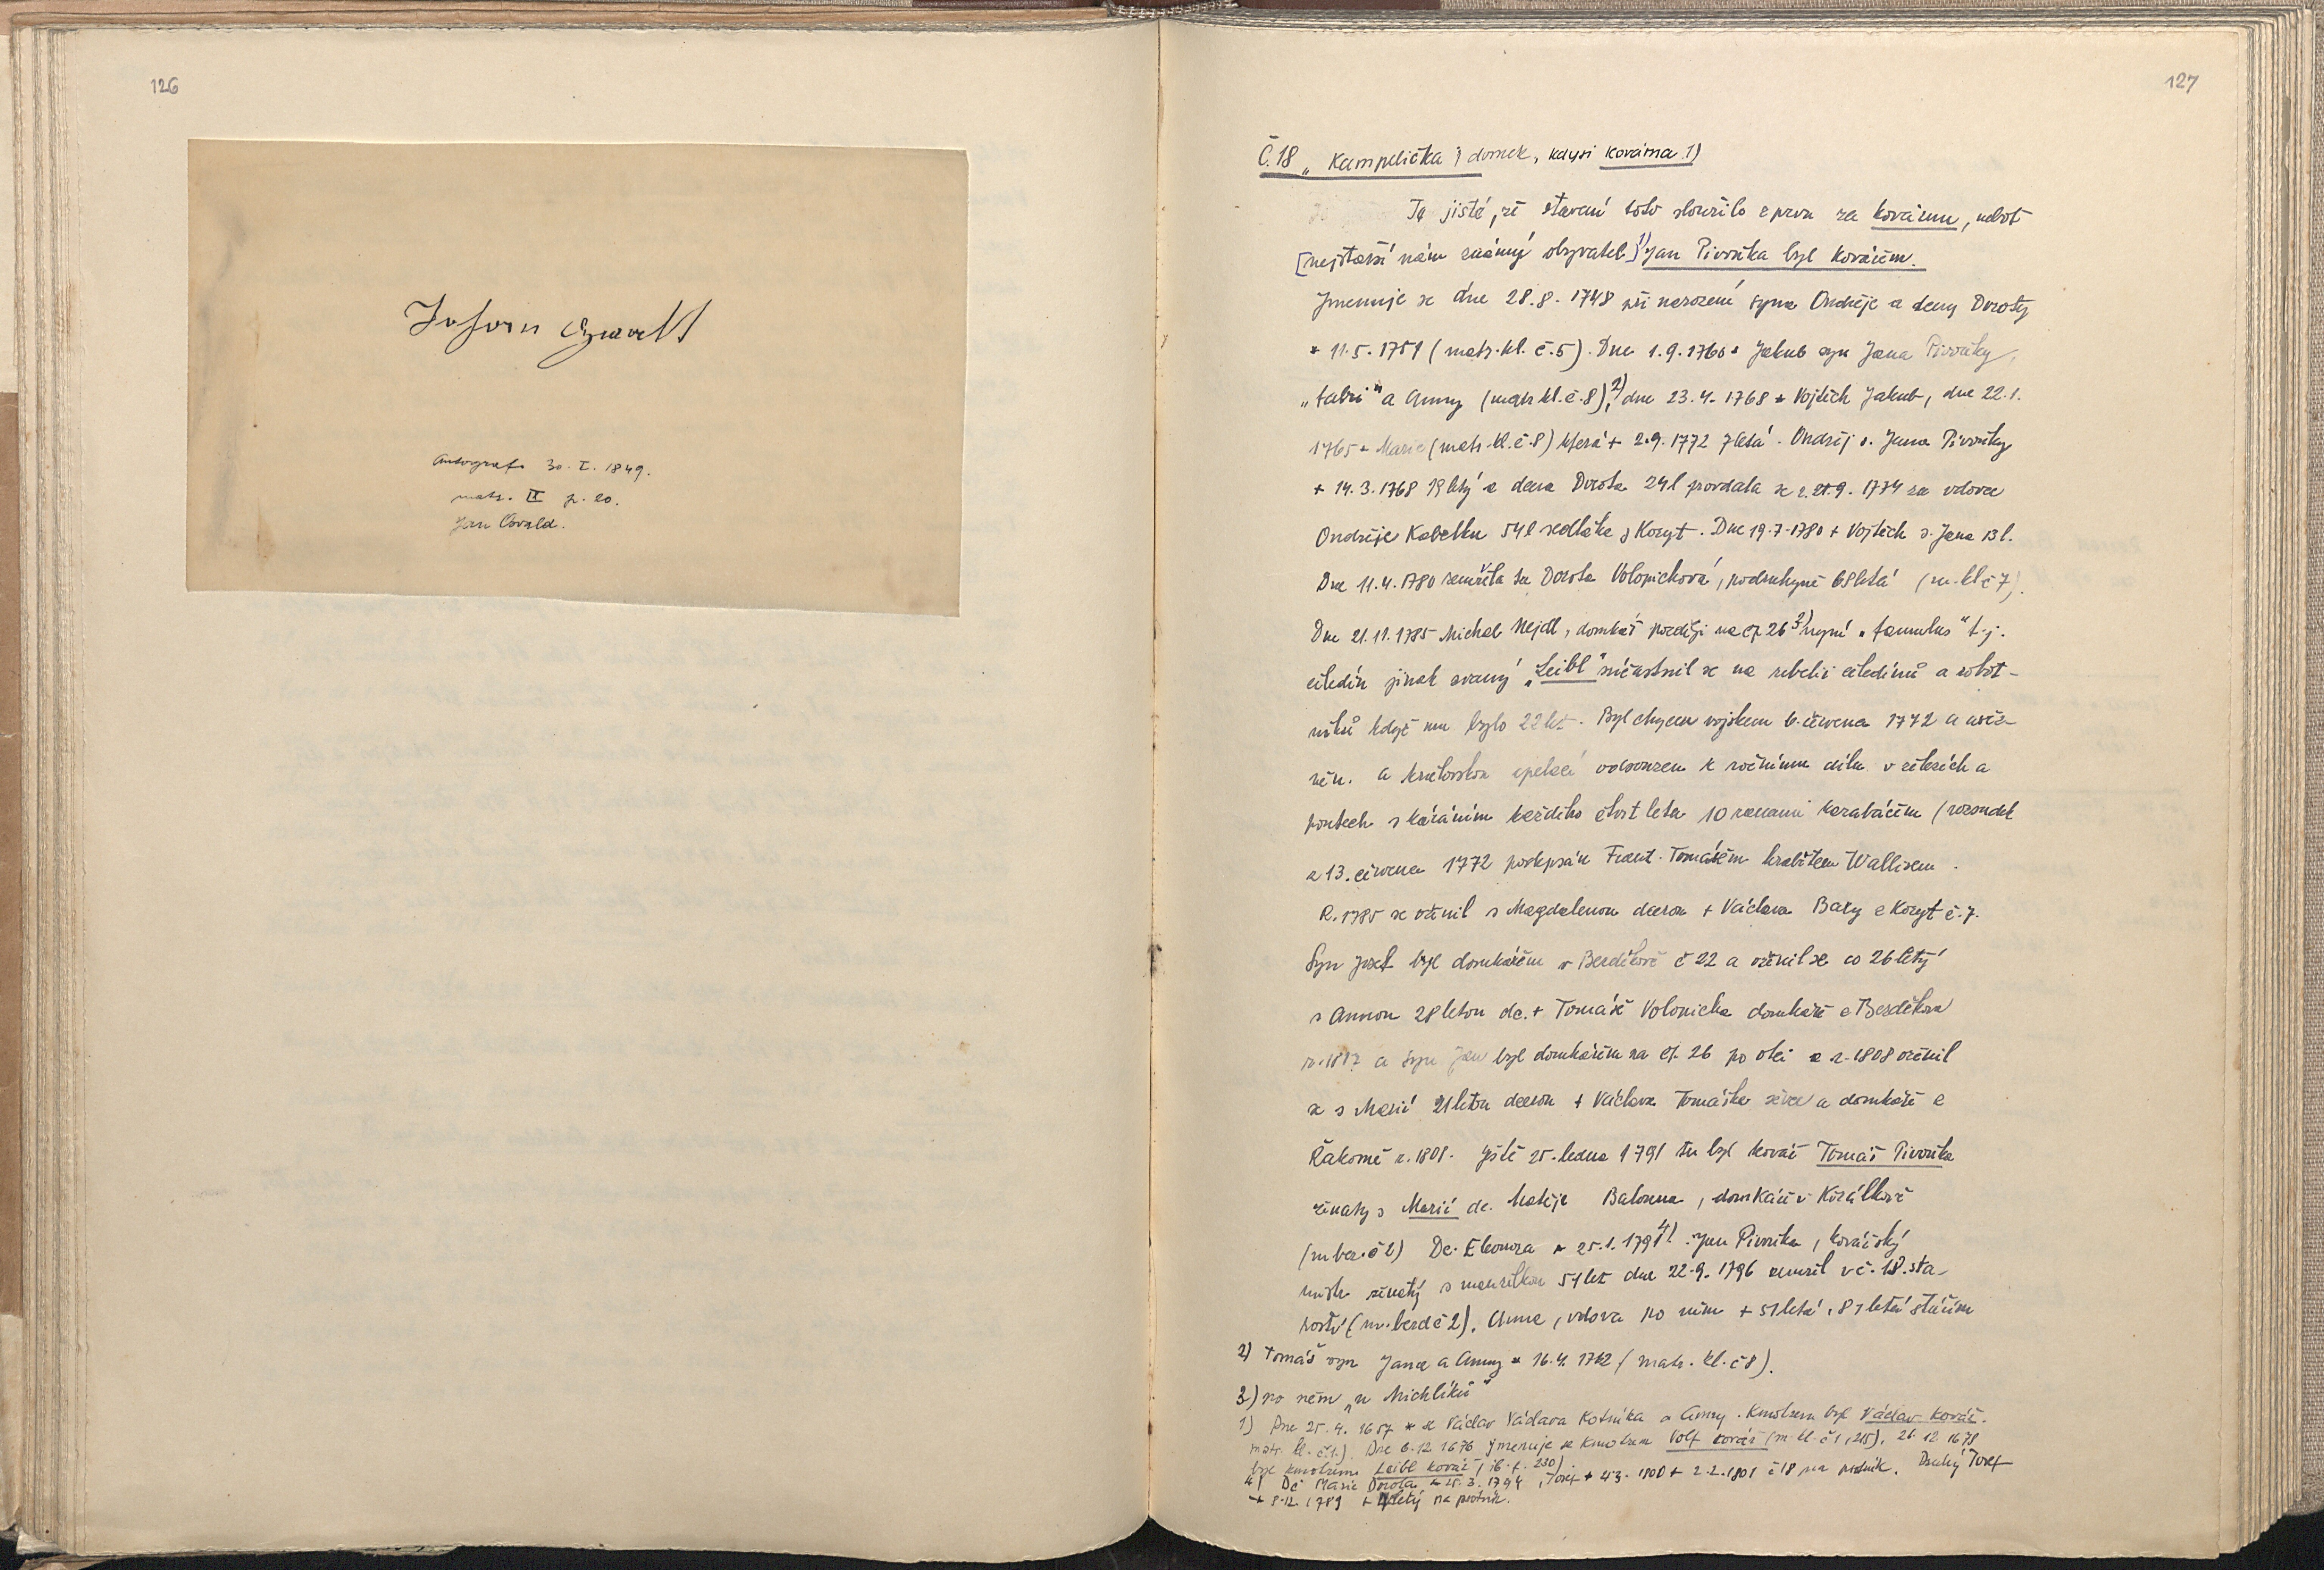 126
Johann Oswald
Autograf. 30. I. 1849.
matr. II p. 20.
Jan Osvald.
127
Č. 18 „Kampelička", domek, kdysi kovárna 1)
Je jisté, že stavení toto sloužilo z prvu za kovárnu, neboť
[nejstarší nám známý obyvatel]1) Jan Pivoňka byl kovářem.
Jmenuje se dne 28.8.1748 při narození syna Ondřeje a dcery Doroty
* 11.5.1751 (matr. kl. č. 5). Dne 1.9.1760 * Jakub syn Jana Pivoňky,
„fabri" a Anny (matr. kl. č. 8),2) dne 23.4.1768 * Vojtěch Jakub, dne 22.1.
1765 * Marie (matr. kl. č. 8) která + 2.9.1772 7letá. Ondřej s. Jana Pivoňky
+ 14.3.1768 19letý a dcera Dorota 24l provdala se r. 21.9.1774 za vdovce
Ondřeje Kabelku 54l sedláka z Kozyt. Dne 19.7.1780 + Vojtěch s. Jana 13 l.
Dne 11.4.1780 zemřela tu Dorota Volopichová, podruhyně 68letá (m. kl č 7).
Dne 21.11.1785 Michal Nejdl, domkář později na čp. 26 3) nyní „famulus" t.j.
čeledín jinak zvaný „Leibl" súčastnil se na rebelii čeledínů a robot-
níků když mu bylo 22 let. Byl chycen vojskem 6. června 1772 a uvěz-
něn. a krutovskou apelací odsouzen k ročnímu dílu v železích a
poutech s káráním každého čtvrt leta 10 ranami karabáčem (rozsudek
z 13. června 1772 podepsán Frant. Tomášem hrabětem Wallisem.
R. 1785 se oženil s Magdalenou dcerou + Václava Baxy z Kozyt č. 7.
Syn Josef byl domkářem v Bezděkově č 22 a oženil se co 26letý
s Annou 28letou dc. + Tomáše Volopicha domkáře z Bezděkova
r. 1817 a syn Jan byl domkářem na čp. 26 po otci a r. 1808 oženil
se s Marií 21letou dcerou + Václava Tomáška ševce a domkáře z
Řakomě r. 1801. Ještě 25. ledna 1791 tu byl kovář Tomáš Pivoňka
ženatý s Marií dc. Matěje Balouna, domkáře v
(m bez. č 2) Dc. Eleonora * 25.1.1791 4). Jan Pivoňka, kovářský
mistr ženatý s manželkou 51 let dne 22.9.1796 zemřel v č. 18. sta-
rostí (m. bezd č 2). Anna, vdova po něm + 87letá stářím
2) Tomáš syn Jana a Anny * 16.4.1762 (matr. kl. č 8).
3) po něm „u Michlíků"
1) Dne 25.4.1657 * se Václav Václava Kotníka a Anny. Kmotrem byl Václav Kovář.
matr. kl. č. 1.). Dne 6.12 1676 jmenuje se kmotrem Volf kovář (m. kl. č 1, 215). 26.12.1678
byl kmotrem Leibl kovář (ib. f. 230).
4) Dc Marie Dorota * 25.3.1794, Josef * 4.3.1800 + 2.2.1801 č 18 na psotník. Druhý Josef
* 8.12.1789 + letý na psotník.